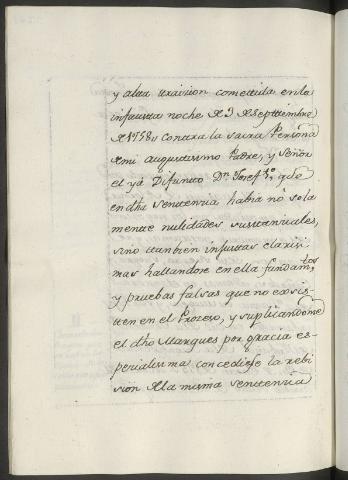 y alta traision cometida en la
infausta noche de 3 de Septtiembre
de 1758, contra la sacra Persona
de mi augustissimo Padre, y Señor
el yá Difunto Dn. Josef 1º, qe.
en dha Sentencia habia no sola
mente nulidades sustanciales,
sino tambien injustas clarisi
mas hallandose en ella fundamtos
y pruebas falsas que no exsis
ten en el Prozeso, y suplicandome
el dho Marques por gracia es-
pecialisima concediese la rebi
sion de la misma Sentencia